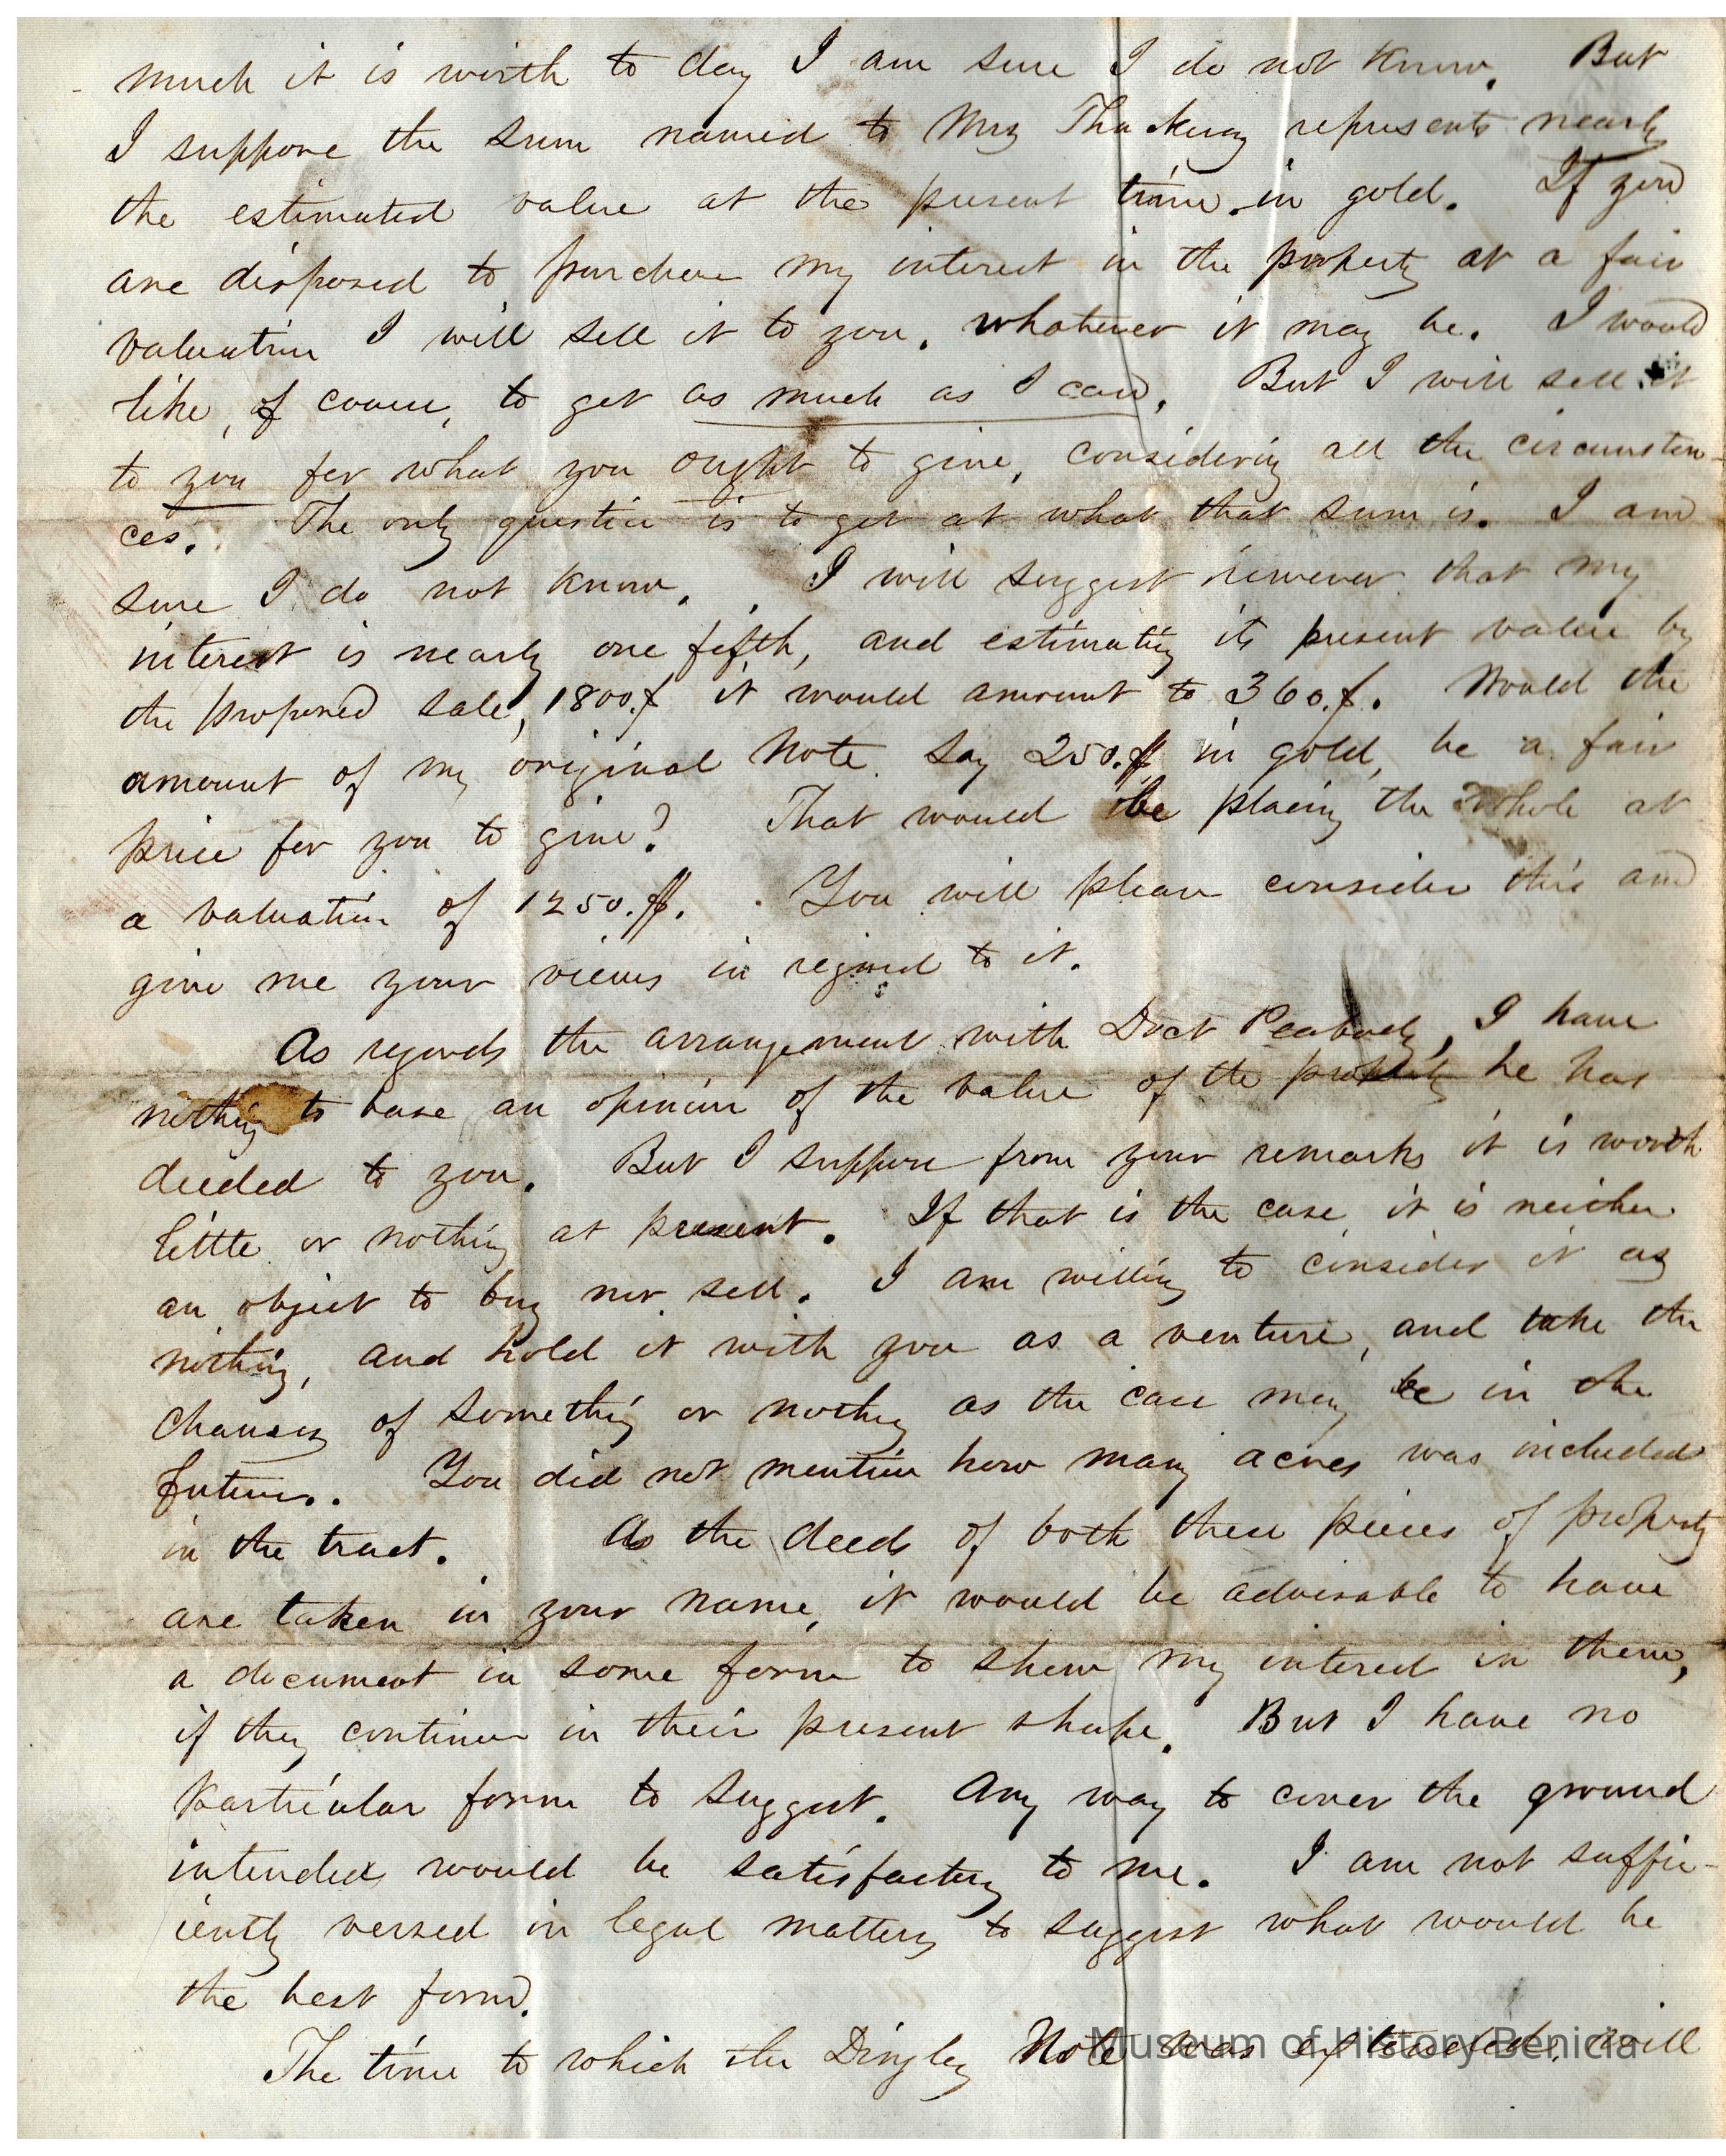 much it is worth to day I am sure I do not know. But
I suppose the sum named to Mrs Thackeray represents nearly
the estimated value at the present time in gold. If you
are disposed to purchase my interest in the property at a fair
valuation I will sell it to you, whatever it may be. I would
like, of course, to get as much as I can. But I will sell it
to you for what you ought to give, considering all the circumstan-
ces. The only question is to get at what that sum is. I am
sure I do not know. I will suggest however that my
interest is nearly one fifth, and estimating its present value by
the proposed sale, 1800.$ it would amount to 360.$. Would the
amount of my original Note say 250.$ in gold, be a fair
price for you to give? That would be placing the whole at
a valuation of 1250.$. You will please consider this and
give me your views in regard to it.
As regards the arrangement with Doct Peabody, I have
nothing to base an opinion of the value of the property he has
deeded to you. But I suppose from your remarks it is worth
little or nothing at present. If that is the case it is neither
an object to buy nor sell. I am willing to consider it as
nothing, and hold it with you as a venture, and take the
chances of something or nothing as the case may be in the
future. You did not mention how many acres was included
in the tract. As the deeds of both these pieces of property
are taken in your name, it would be advisable to have
a document in some form to shew my interest in them,
if they continue in their present shape. But I have no
particular form to suggest. Any way to cover the ground
intended would be satisfactory to me. I am not suffic-
iently versed in legal matters to suggest what would be
the best form.
The time to which the Dingley Note was extended, will
Museum of History Benicia